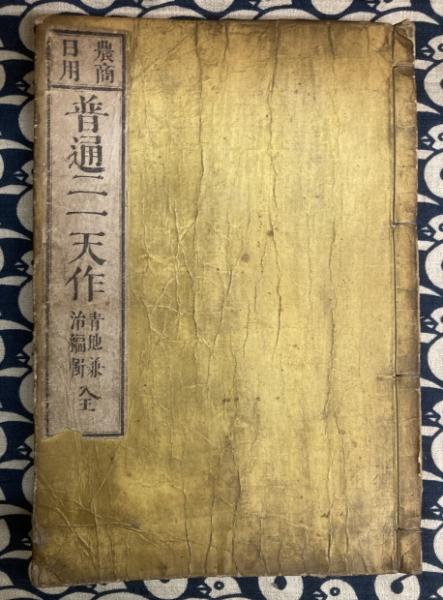 農商
日用
普通二一天作
青地兼
治編輯
全